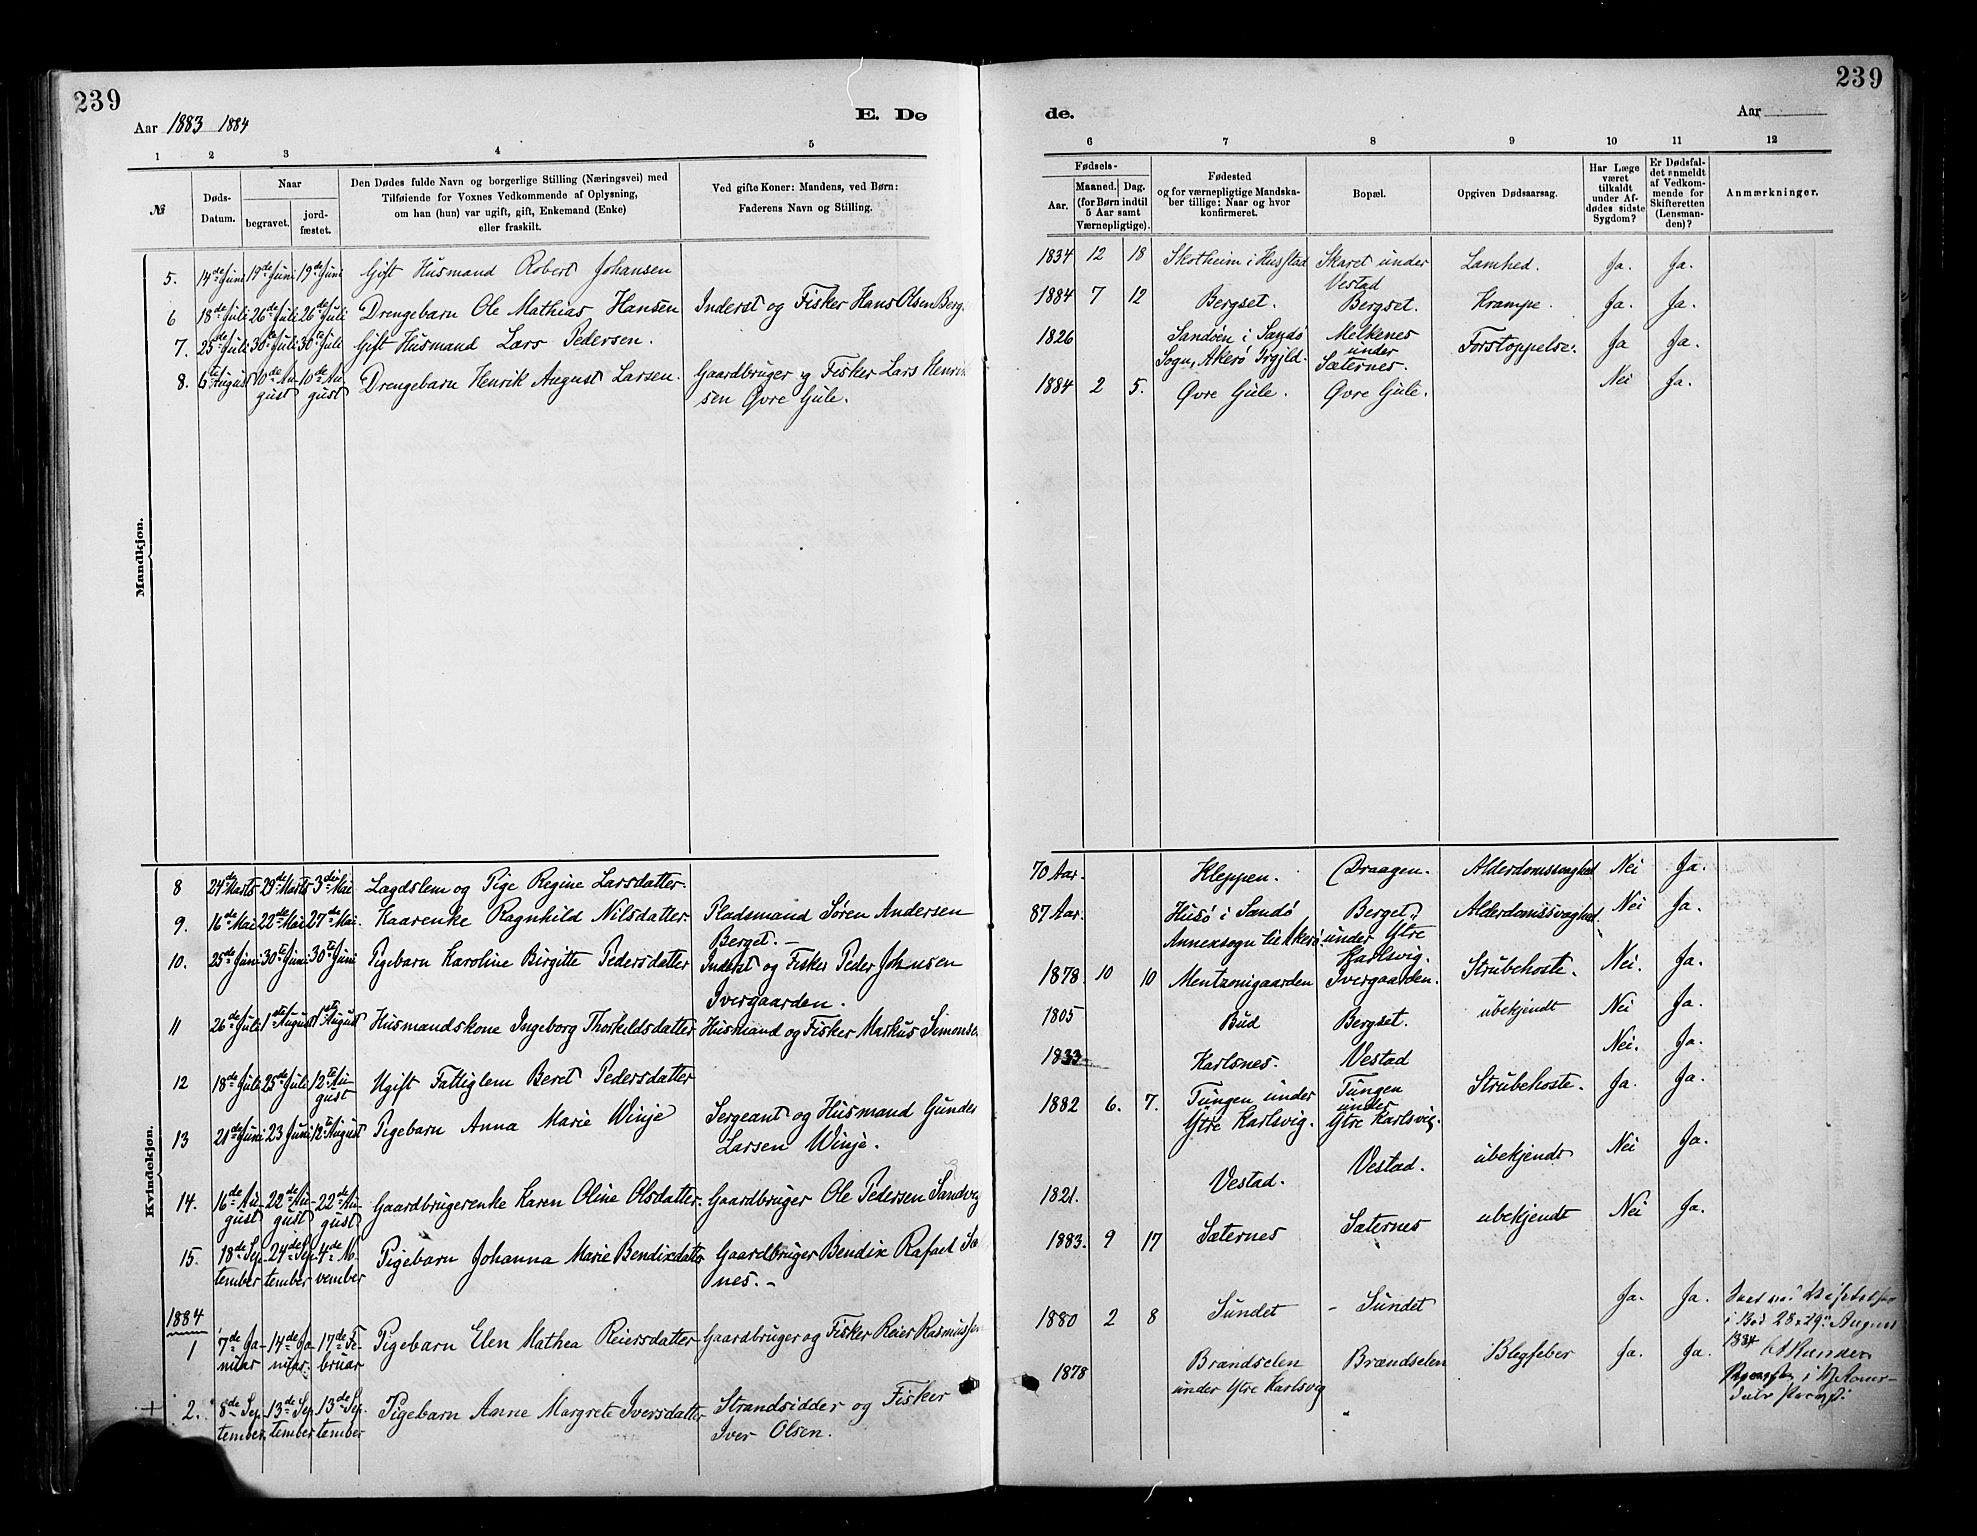 239
239
Aar 1883 1884
E. Dø
de.
Aar
1
2
3
4
5
6
7
8
9
10
11
12
№
Døds-
Datum.
Naar
begravet.
jord-
fæstet.
Den Dødes fulde Navn og borgerlige Stilling (Næringsvei) med
Tilføiende for Voxnes Vedkommende af Oplysning,
om han (hun) var ugift, gift, Enkemand (Enke)
eller fraskilt.
Ved gifte Koner: Mandens, ved Børn:
Faderens Navn og Stilling.
Fødsels-
Aar.
Maaned. Dag.
(for Børn indtil
5 Aar samt
Værnepligtige).
Fødested
og for værnepligtige Mandska-
ber tillige: Naar og hvor
konfirmeret.
Bopæl.
Opgiven Dødsaarsag.
Har Læge
været
tilkaldt
under Af-
dødes sidste
Sygdom?
Er Dødsfal-
det anmeldt
af Vedkom-
mende for
Skifteretten
(Lensman-
den)?
Anmærkninger.
Mandkjøn.
5. 14de Juni 19de Juni 19de Juni Gift Husmand Robert Johansen 1834 12 18 Skotheim i Husstad Skaret under Lamhed. Ja. Ja.
Vestad
6 18de Juli 26de Juli 26de Juli Drengebarn Ole Mathias Hansen Inderst og Fisker Hans Olsen Berg 1884 7 12 Bergset. Bergset. Krampe. Ja. Ja.
7. 25de Juli 30de Juli 30de Juli Gift Husmand Lars Pedersen. 1826 Sandøen i Sandø Melkenes Forstoppelse. Ja Ja.
Sogn, Akerø Prgjld. under
Sæternes.
8. 6te August 10de Au- 10de Au- Drengebarn Henrik August Larsen. Gaardbruger og Fisker Lars Henrik 1884 2 5. Øvre Gule. Øvre Gule. Nei Ja.
gust gust sen Øvre Gule.
Kvindekjøn.
8 24de Marts 29de Marts 3die Mai Lagdslem og Pige Regine Larsdatter. 70 Aar. Kleppen. Draagen. Alderdomssvaghed Nei Ja.
9. 16de Mai 22de Mai 27de Mai. Kaarenke Ragnhild Nilsdatter Pladsmand Søren Andersen 87 Aar. Husø i Sandø Berget Alderdomssvaghed. Nei Ja.
Berget. Annexsogn til Akerø under Ytre
Karlsvig.
10. 25de Juni 30te Juni 30te Juni Pigebarn Karoline Birgitte Pedersdatter Inderst og Fisker Peder Johnsen 1878 10 10 Mentzonigaarden Ivergaarden. Strubehoste. Nei. Ja.
Ivergaarden.
11 26de Juli 1ste August 1ste August Husmandskone Ingeborg Thorkildsdatter Husmand og Fisker Markus Simonse 1805 Bud Bergset. ubekjendt Nei Ja.
12 18de Juli 25de Juli 12te Au- Ugift Fattiglem Beret Pedersdatter 1833 Karlsnes. Vestad Nei. Ja.
gust
13 21de Juni 23 Juni 12te August Pigebarn Anna Marie Winje Sergeant og Husmand Gunder 1882 6. 7. Tungen under Tungen Strubehoste. Ja. Ja.
Larsen Winje. Ytre Karlsvig. under
Ytre Karlsvig.
14. 16de Au- 22de Au- 22de Au- Gaardbrugerenke Karen Oline Olsdatter. Gaardbruger Ole Pedersen Sandvig 1821. Vestad. Vestad. ubekjendt Nei Ja.
gust gust gust
15. 18de Sep- 24de Sep- 4de No- Pigebarn Johanna Marie Bendixdatter Gaardbruger Bendix Rafael Sæ 1883. 9 17 Sæternes Sæternes ubekjendt Nei Ja.
tember tember vember nes.
1884
1 7de Ja- 14de Ja- 17de Fe- Pigebarn Elen Mathea Reiersdatter Gaardbruger og Fisker Reier Rasmussen 1880 2 8 Sundet - Sundet Ja. Ja.
nuar nuar. bruar
i Bod 28 & 29de August
1884
2. 8de Sep- 13de Sep- 13de Sep- Pigebarn Anne Margrete Iversdatter Strandsidder og Fisker 1878 Brandselen Brandselen Blegfeber Ja. Ja.
tember, tember tember Iver Olsen. under Ytre Karlsvig